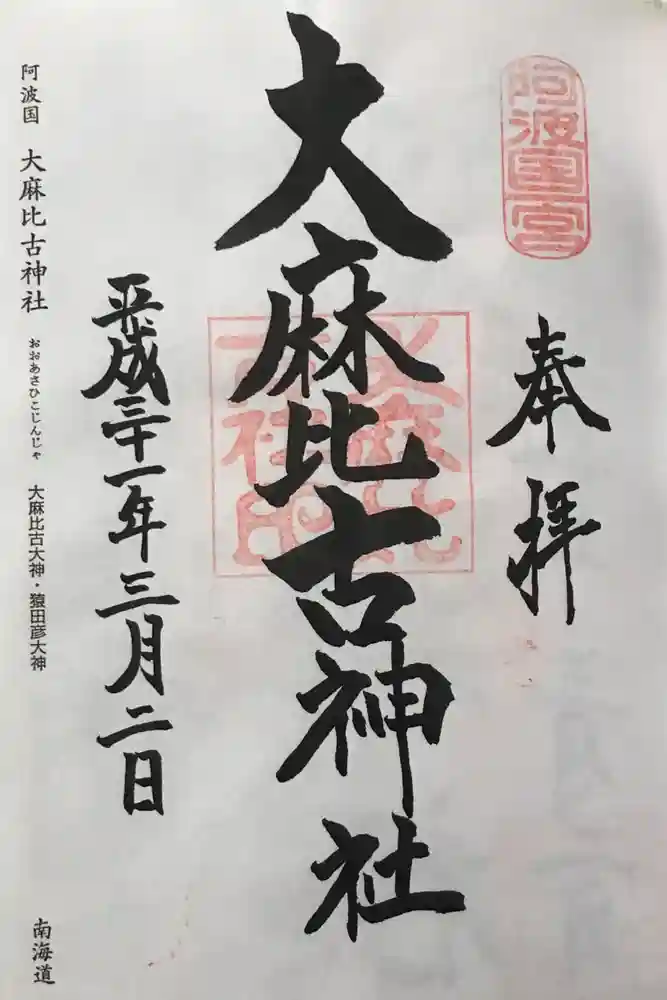 阿波国一宮
奉拝
大麻比古神社
大麻比古神社印
平成三十一年三月二日
阿波国 大麻比古神社 おおあさひこじんじゃ 大麻比古大神・猿田彦大神
南海道